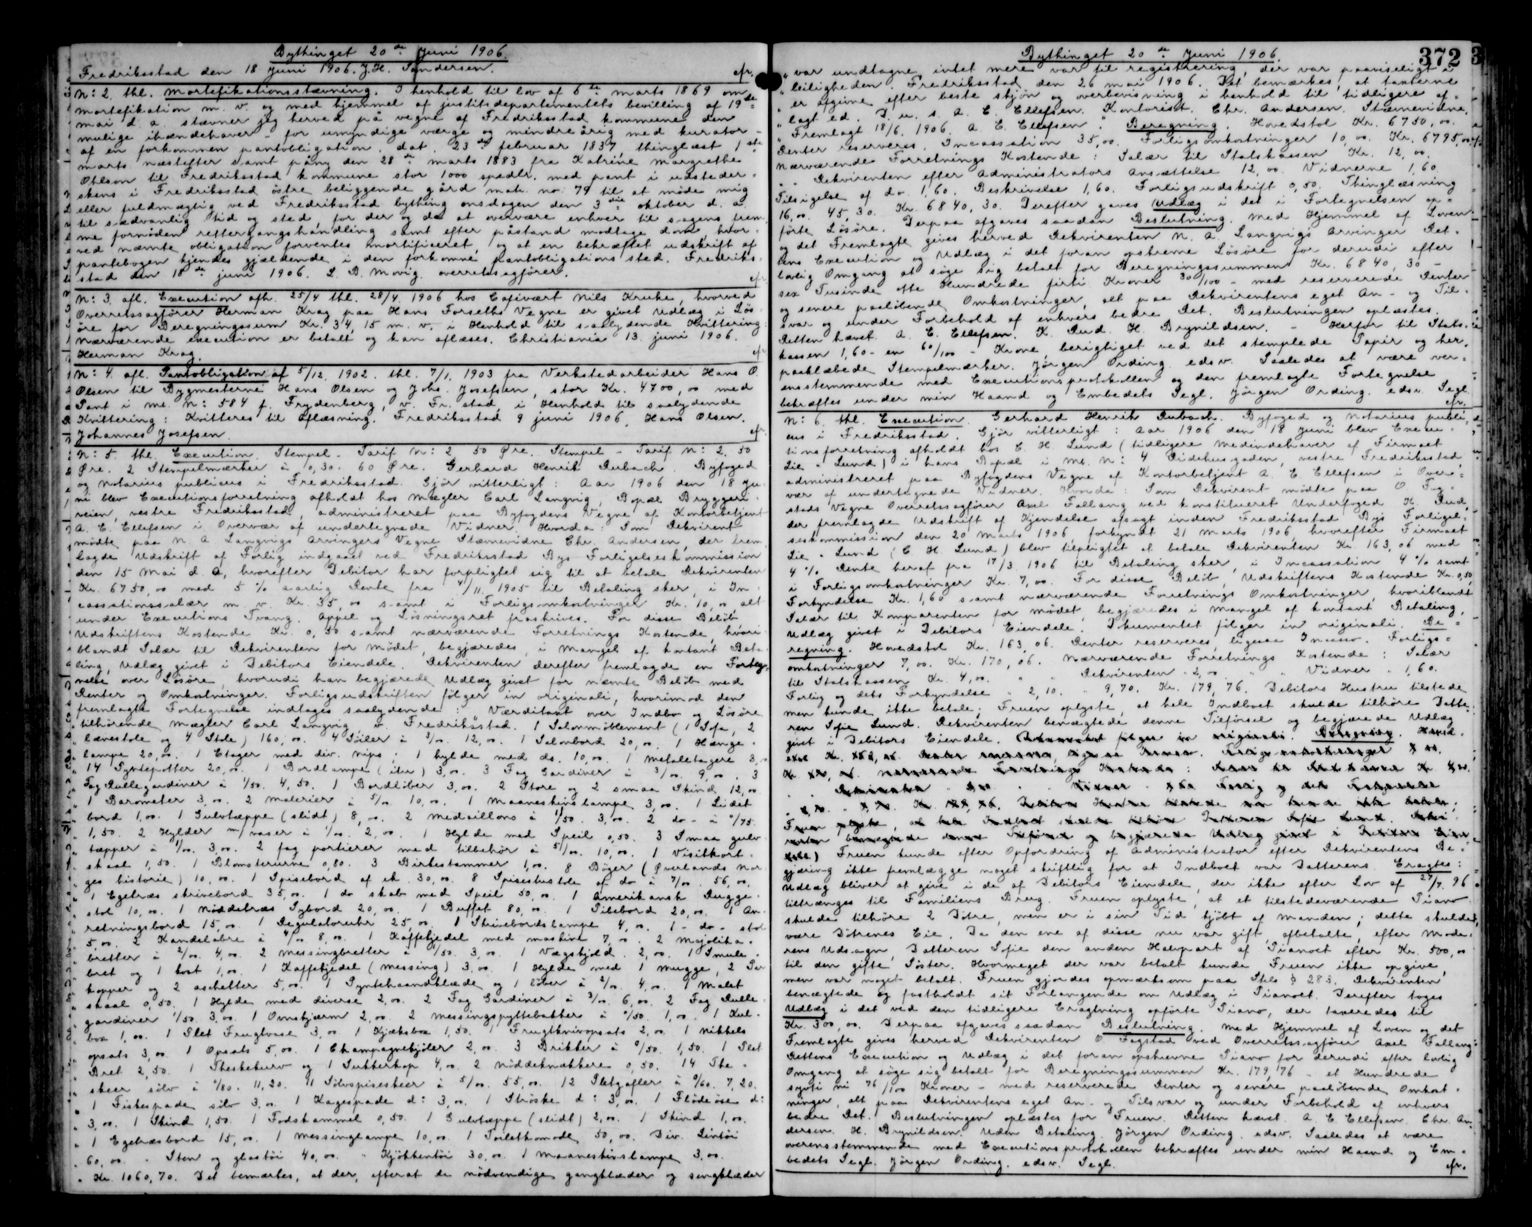 Bythinget 20de Juni 1906.
Fredriksstad den 18 juni 1906. J.H. Sandersen.
efr.
N: 2. thl. Mortifikationsstævning. I henhold til lov af 6te marts 1869 om
mortifikation m. v. og med hjemmel af justitsdepartementets bevilling af 19de
mai d a. stævner jeg herved på vegne af Fredriksstad kommune den
mulige ihændehaver, for umyndige værge og mindreårig med kurator
af en forkommen pantobligation, dat. 23de februar 1837 thinglæst 1ste
marts næstefter samt påny den 28de marts 1883 fra Katrine Margrethe
Ohlson til Fredriksstad kommune stor 1000 spedlr. med pant i udsteder-
skens i Fredriksstad östre beliggende gård mat. no: 79 til at möde mig
eller fuldmægtig ved Fredriksstad bything onsdagen den 3die oktober d. a.
til sædvanlig tid og sted, for der og da at overvære enhver til sagens frem-
me fornöden rettergangshandling samt efter påstand modtage dom, hvor-
ved nævnte obligation forventes mortificeret og at en bekræftet udskrift af
pantebogen kjendes gjældende i den forkomne pantobligations sted. Fredriks-
stad den 18de juni 1906. L. B. Movig, overretssagfører.
efr
N: 3. afl. Execution afh. 25/4 thl. 28/4 1906 hos Cafévært Nils Kruke, hvorved
Overretssagfører Herman Krag paa Hans Forseths Vegne er givet Udlæg i Lös-
öre for Beregningssum Kr. 34,15 m. v. i Henhold til saalydende Kvittering:
Nærværende execution er betalt og kan aflæses. Christiania 13. juni 1906.
Herman Krag.
efr
N: 4. afl. Pantobligation af 5/12. 1902. thl. 7/1. 1903 fra Verkstedarbeider Hans O
Olsen til Bygmesterne Hans Olsen og Johs. Josefsen stor Kr. 4700,00 med
Pant i mt. N: 584 f. Frydenberg, v. Fr.stad i Henhold til saalydende
Kvittering: Kvitteres til aflæsning. Fredriksstad 9 juni 1906. Hans Olsen.
Johannes Josefsen.
efr
N: 5. thl. Execution. Stempel - Tarif N: 2 50 Øre. Stempel - Tarif N: 2. 50
Øre. 2 Stempelmærker à 0,30. 60 Øre. Gerhard Henrik Aubach. Byfoged
og notarius publicus i Fredriksstad. Gjör vitterligt: Aar 1906 den 18 Ju-
ni blev Executionsforretning afholdt hos Mægler Carl Langvig, Bopæl Bryggeri-
veien vestre Fredriksstad, administreret paa Byfogdens Vegne af Kontorbetjent
A. E. Ellefsen i Overvær af undertegnede Vidner. Hvorda: Som Rekvirent
mödte paa N A Langvigs Arvingers Vegne Stævnevidne Chr. Andersen, der frem-
lagde Udskrift af Forlig indgaaet ved Fredriksstad Bys Forligelseskommission
den 15 Mai d. A, hvorefter Debitor har forpligtet sig til at betale Rekvirenten
Kr. 6750,00 med 5 % aarlig Rente fra 4/11 1905 til Betaling sker, i In-
cassationssalær m v. Kr. 35,00 samt i Forligsomkostninger Kr. 10,00 alt
under Executions Tvang. Appel og Løsningsret fraskrives. For disse Beløb
Udskriftens Kostende Kr. 0,50 samt nærværende Forretnings Kostende, hvori-
blandt Salær til Rekvirenten for Mødet, begjæredes, i Mangel af kontant Beta-
ling, Udlæg givet i Debitors Eiendele. Rekvirenten derefter fremlagde en Forteg-
nelse over Løsöre, hvorudi han begjærede Udlæg givet for nævnte Beløb med
Renter og Omkostninger. Forligsudskriften følger in originali, hvorimod den
fremlagte Fortegnelse indtages saalydende: Værditaxt over Indbo og Løsöre
tilhörende Mægler Carl Langvig v. Fredriksstad. 1 Salonmöblement (1 Sofa, 2
lænestole og 4 Stole) 160,00. 4 Söiler à 3/00 12,00. 1 Salonbord 20,00. 1 Hænge-
lampe 20,00. 1 Etager med div. nips. 1 hylde med do. 10,00. 1 metaltagere 3,00
14 Syntepotter 20,00. 1 Bordlampe (itu) 3,00. 3 Fag Gardiner à 3/00 9,00. 3
Fag Rullegardiner à 1/50 4,50. 1 Bordtiber 3,00. 2 Store og 2 smaa Skind 12,00
1 Barometer 3,00. 2 Malerier à 5/00 10,00. 1 Maaneskinslampe 3,00. 1 Lidet
bord 1,00. 1 Gulvtæppe (slidt) 8,00. 2 Medaillons à 1/50 3,00. 2 do - à 0/75
1,50. 2 Hylder m/vaser à 1/00 2,00. 1 Hylde med Speil 0,50. 3 Smaa gulv-
tæpper à 1/00 3,00. 2 fag portierer med tilbehör à 5/00 10,00. 1 Visitkort-
skaal 1,50. 1 Blomsterurne 0,80. 3 Birkestammer 1,00. 8 Böger (Øverlands Nor-
ges historie) 10,00. 1 Spisebord af ek. 30,00. 8 Spisestustole af do à 7/00 56,00.
1 Egetræs skrivebord 35,00. 1 do skab med Speil 50,00. 1 Amerikansk Gynge-
stol 10,00. 1 Nöddetræs Sybord 20,00. 1 Buffet 80,00. 1 Pibebord 20,00. 1 An-
retningsbord 15,00. 1 Regulatoruhr 25,00. 1 Skrivebordslampe 4,00. 1 - do - stol
5,00. 2 Kandelabre à 4/00 8,00. 1 Kaffekjedel med maskin 7,00. 2 Majolika-
bretter à 2/00 4,00. 2 messingbretter à 1/50 3,00. 1 Vægskjold 2,00. 1 Smule-
bret og 1 kost 1,00. 1 Kaffekjedel (messing) 3,00. 1 Hylde med 1 mugge, 2
kopper og 2 aschetter 5,00. 1 Pyntehaandklæde og 1 Löber à 2/00 4,00. 1 Malet
skaal 0,50. 1 Hylde med diverse 2,00. 2 Fag Gardiner à 3/00 6,00. 2 Fag Rulle-
gardiner 1/50 3,00. 1 Ovnskjærm 2,00. 2 messingspyttebakker à 0/50 1,00. 1 Kul-
box 1,00. 1 Slet Frugtvase 3,00. 1 Kjæksbox 1,50. 1 Frugtknivopsats 2,00. 1 nikkels
opsats 3,00. 1 Opsats 5,00. 1 Champagnekjöler 2,00. 3 Brikker à 0/50 1,50. 1 Slet
Bret 2,50. 1 Theskekurv og 1 Sukkerkop 4,00. 2 Nöddeknækkere 0,50. 14 The-
skeer sölv à 0/80 11,20. 11 Sölvspiseskeer à 5/00 55,00. 12 Sletgafler à 0/60 7,20.
1 Fiskespade sölv 3,00. 1 Kagespade d: 3,00. 1 Ströske d: 3,00. 1 Flödeöse d:
3,00. 1 Skind 1,50. 1 Fodskammel 0,50. 1 Gulvtæppe (slidt) 2,00. 1 Skind 1,00.
1 Egetræsbord 15,00. 1 messinglampe 10,00. 1 Toiletkomode 50,00. Div. Lintöi
60,00. - Sten og glastöi 40,00. - Kjökkentöi 30,00. 1 Maaneskinslampe 3,00.
Kr. 1060,70. Det bemærkes, at der, efterat de nödvendige gangklæder og sengklæder
Bythinget 20de Juni 1906.
372
var undtagne, intet mere var til registrering, der var paaviseligt i
leiligheden. Fredriksstad den 26 mai 1906. Det bemærkes, at taxterne
er opgivne efter beste skjön og overbevisning i henhold til tidligere af-
lagt ed. D. u. s. A. E. Ellefsen. Kontorist. Chr. Andersen. Stævnevidne.
Fremlagt 18/6. 1906. A. E. Ellefsen. Beregning. Hovedstol Kr. 6750,00.
Renter reserveres. Incassation 35,00. Forligsomkostninger 10,00. Kr. 6795,00
Nærværende Forretnings Kostende: Salær til Statskassen Kr. 12,00.
Rekvirenten efter Administrators Ansættelse 12,00. Vidnerne 1,60.
Tilsigelse af do. 1,60. Beskrivelse 1,60. Forligsudskrift 0,50. Thinglæsning
16,00. 45,30. Kr. 6840,30. Derefter gaves Udlæg i det i Fortegnelsen op-
förte Løsöre. Derpaa afgaves saadan Beslutning. Med Hjemmel af Loven
og det Fremlagte gives herved Rekvirenten N. A. Langvigs Arvinger Ret-
tens Execution og Udlæg i det foran opskrevne Løsöre for derudi efter
lovlig Omgang at söge sig betalt for Beregningssummen Kr. 6840,30 -
sex Tusinde otte Hundrede firti Kroner 30/100 - med reserverede Renter
og senere paalöbende Omkostninger, alt paa Rekvirentens eget An- og Til-
svar og under Forbehold af enhvers bedre Ret. Beslutningen oplæstes.
Retten hævet. A. E. Ellefsen. K. Rud. H. Brynildsen. - Herfor til Stats-
kassen 1,60 - en 60/100 - Krone, berigtiget ved det stemplede Papir og her-
paaklæbede Stempelmærker. Jörgen Ording edsv. Saaledes at være over-
ensstemmende med Executionsprotokollen og den fremlagte Fortegnelse
bekræftes under min Haand og Embedets Segl. Jörgen Ording. edsv. Segl.
efr.
N: 6. thl. Execution. Gerhard Henrik Aubach. Byfoged og Notarius publi-
cus i Fredriksstad. Gjör vitterligt: Aar 1906 den 18 Juni blev Execu-
tionsforretning afholdt hos E. H. Lund (tidligere Medindehaver af Firmaet
Lie - Lund) i hans Bopæl i mt. N: 4 Ridehusgaden, vestre Fredriksstad,
administreret paa Byfogdens Vegne af Kontorbetjent A. E. Ellefsen i Over-
vær af undertegnede Vidner. Hvorda: Som Rekvirent mödte paa O Fag-
stads Vegne Overretssagfører Axel Fallang ved konstitueret Underfoged K Rud
der fremlagde Udskrift af Kjendelse afsagt inden Fredriksstad Bys Forligel-
seskommission den 20 Marts 1906 forkyndt 21 Marts 1906 hvorefter Firmaet
Lie - Lund (E H Lund) blev tilpligtet at betale Rekvirenten Kr. 163,06 med
4 % Rente heraf fra 17/3 1906 til Betaling sker, i Incassation 4 % samt
i Forligsomkostninger Kr. 7,00. For disse Beløb, Udskriftens Kostende Kr. 0,50,
Forkyndelse Kr. 1,60 samt nærværende Forretnings Omkostninger, hvoriblandt
Salær til Komparenten for mödet, begjæredes i Mangel af kontant Betaling,
Udlæg givet i Debitors Eiendele. Dokumentet følger in originali. Be-
regning. Hovedstol Kr. 163,06. Renter reserveres, ligesaa Incasso. Forligs-
omkostninger 7,00. Kr. 170,06. Nærværende Forretnings Kostende: Salær
til Statskassen Kr. 4,00. Rekvirenten 2,00. Vidner 1,60.
Forlig og dets Forkyndelse 2,10. 9,70. Kr. 179,76. Debitors Hustru tilstede
men kunde ikke betale. Fruen oplyste, at hele Indboet skulde tilhöre Datte-
ren Sofie Lund. Rekvirenten benægtede denne Tilförsel og begjærede Udlæg
givet i Debitors Eiendele.
Fruen kunde efter Opfordring af Administrator efter Rekvirentens Be-
gjæring ikke fremlægge noget skriftlig for at Indboet var Datterens. Eragtes:
Udlæg bliver at give i de af Debitors Eiendele, der ikke efter Lov af 29/7. 96
tiltrænges til Familiens Brug. Fruen oplyste, at et tilstedeværende Piano
skulde tilhöre 2 Dötre, men er i sin Tid kjöbt af Manden; dette skulde
være Dötrenes Eie. Da den ene af disse nu var gift afbetalte, efter Mode-
rens Udsagn, Datteren Sofie den anden Halvpart af Pianoet efter Kr. 500,00
til den gifte Söster. Hvormeget der var betalt kunde Fruen ikke opgive,
men var noget betalt. Fruen gjordes opmærksom paa Stls § 283. Rekvirenten
benægtede og fastholdt sit Forlangende om Udlæg i Pianoet. Derefter toges
Udlæg i det ved den tidligere Eragtning opförte Piano, der taxeredes til
Kr. 300,00. Derpaa afgaves saadan Beslutning. Med Hjemmel af Loven og det
Fremlagte gives herved Rekvirenten O Fagstad ved Overretssagfører Axel Fallang
Rettens Execution og Udlæg i det foran opskrevne Piano for derudi efter lovlig
Omgang at söge sig betalt for Beregningssummen Kr. 179,76 - et Hundrede
sytti ni 76/100 Kroner - med reserverede Renter og senere paalöbende Omkost-
ninger, alt paa Rekvirentens eget An- og Tilsvar og under Forbehold af enhvers
bedre Ret. Beslutningen oplæstes for Fruen. Retten hævet. A. E. Ellefsen. Chr. An-
dersen. H. Brynildsen. Uden Betaling. Jörgen Ording. edsv. Saaledes at være
overensstemmende med Executionsprotokollen bekræftes under min Haand og Em-
bedets Segl. Jörgen Ording. edsv. Segl.
efr.